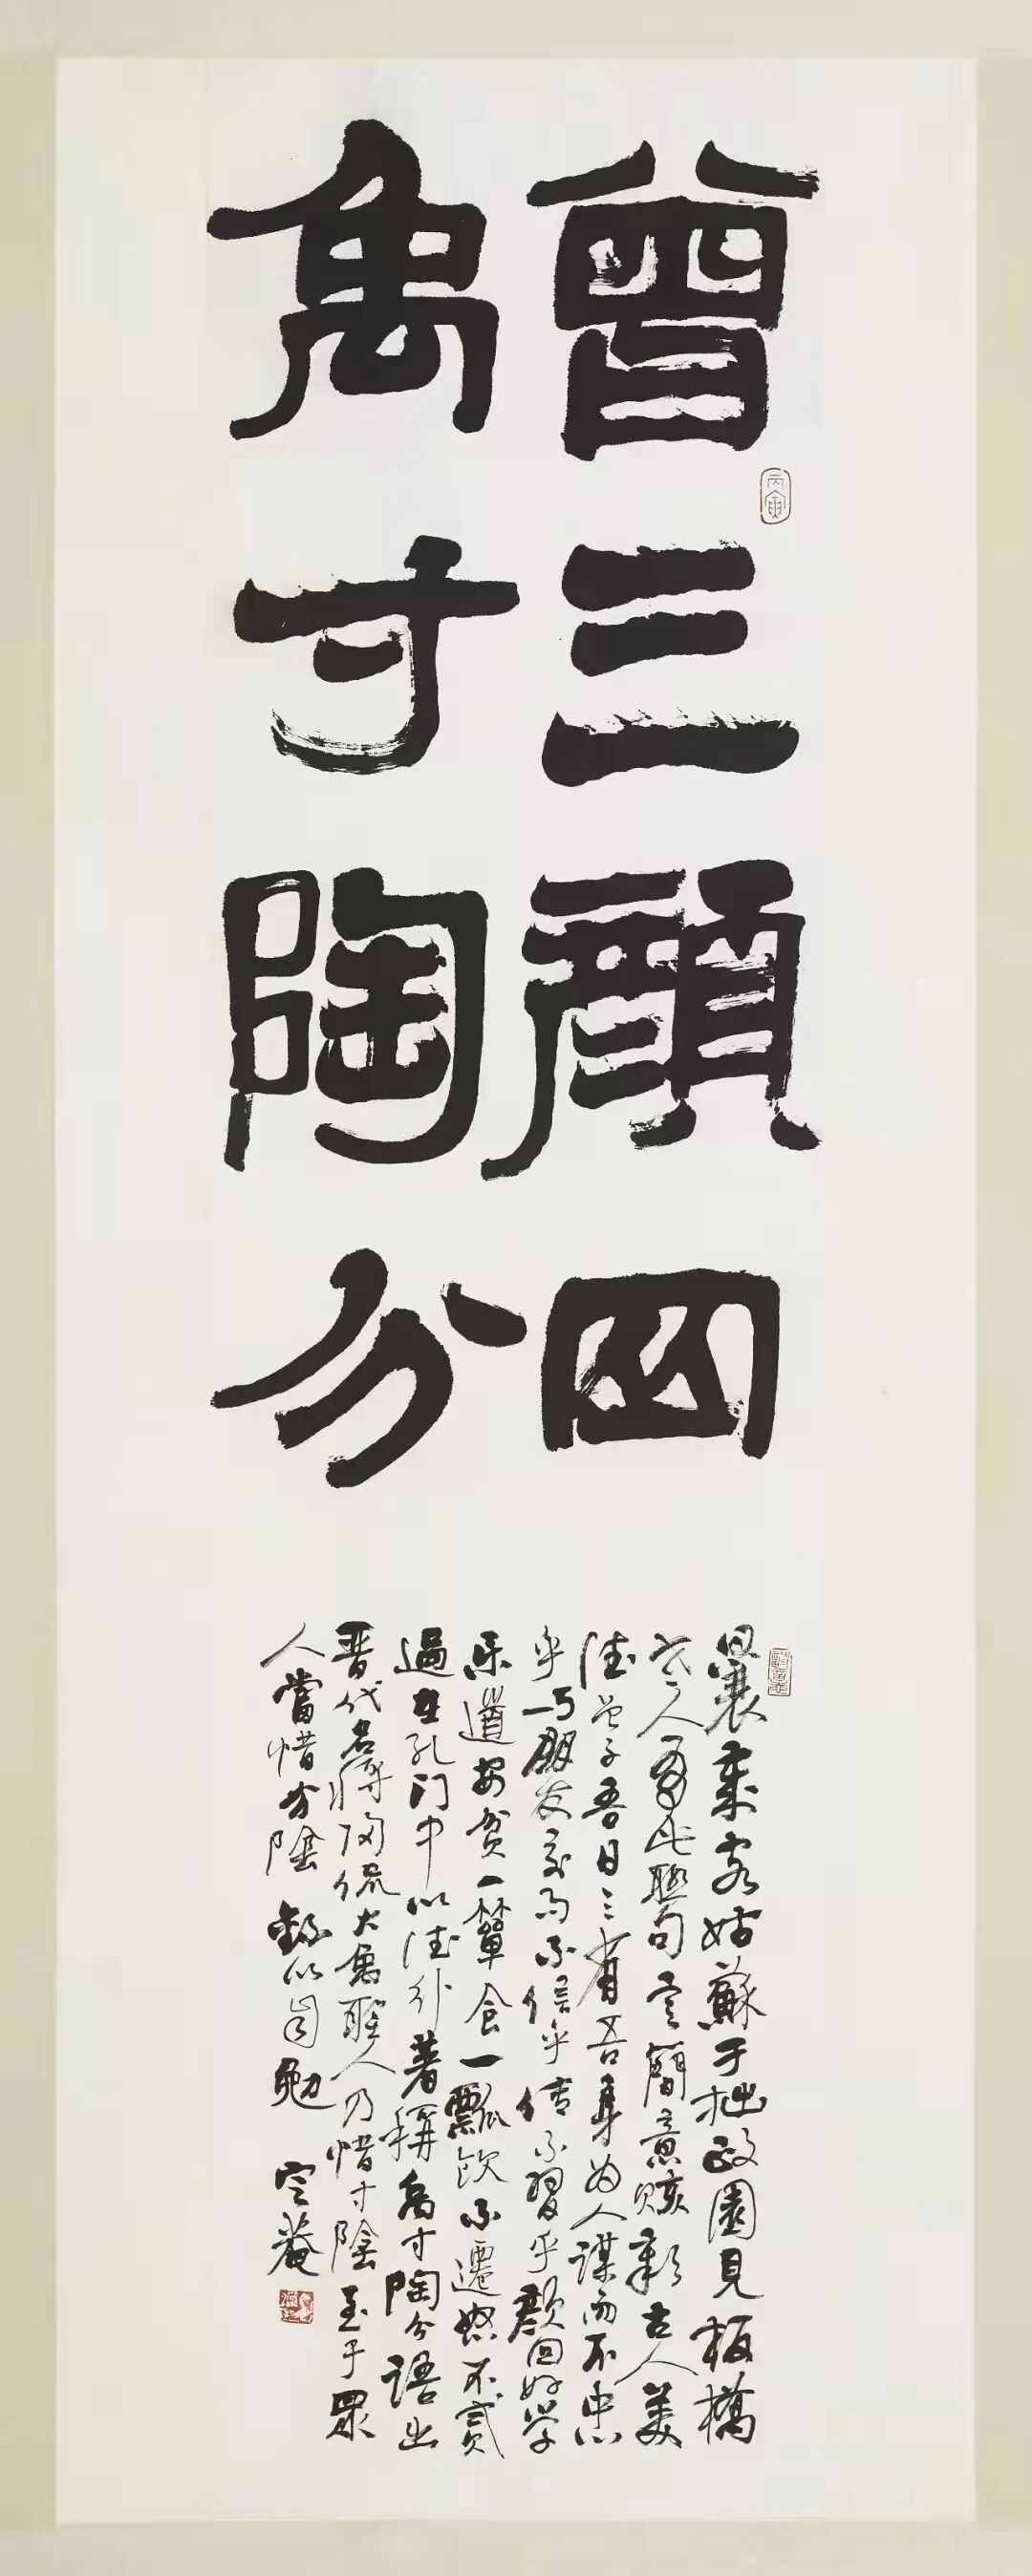 曾三顔四
禹寸陶分
丙寅
曩客姑蘇于拙政園見板橋
老人有此聯句言簡意賅彰古人美
德曾子吾日三省吾身为人謀而不忠
乎与朋友交而不信乎传不習乎顔回好学
乐道安贫一簞食一瓢飲不遷怒不貳
過在孔门中以德行著稱禹寸陶分語出
晋代名將陶侃大禹聖人乃惜寸陰至于眾
人當惜分陰錄以自勉 定菴